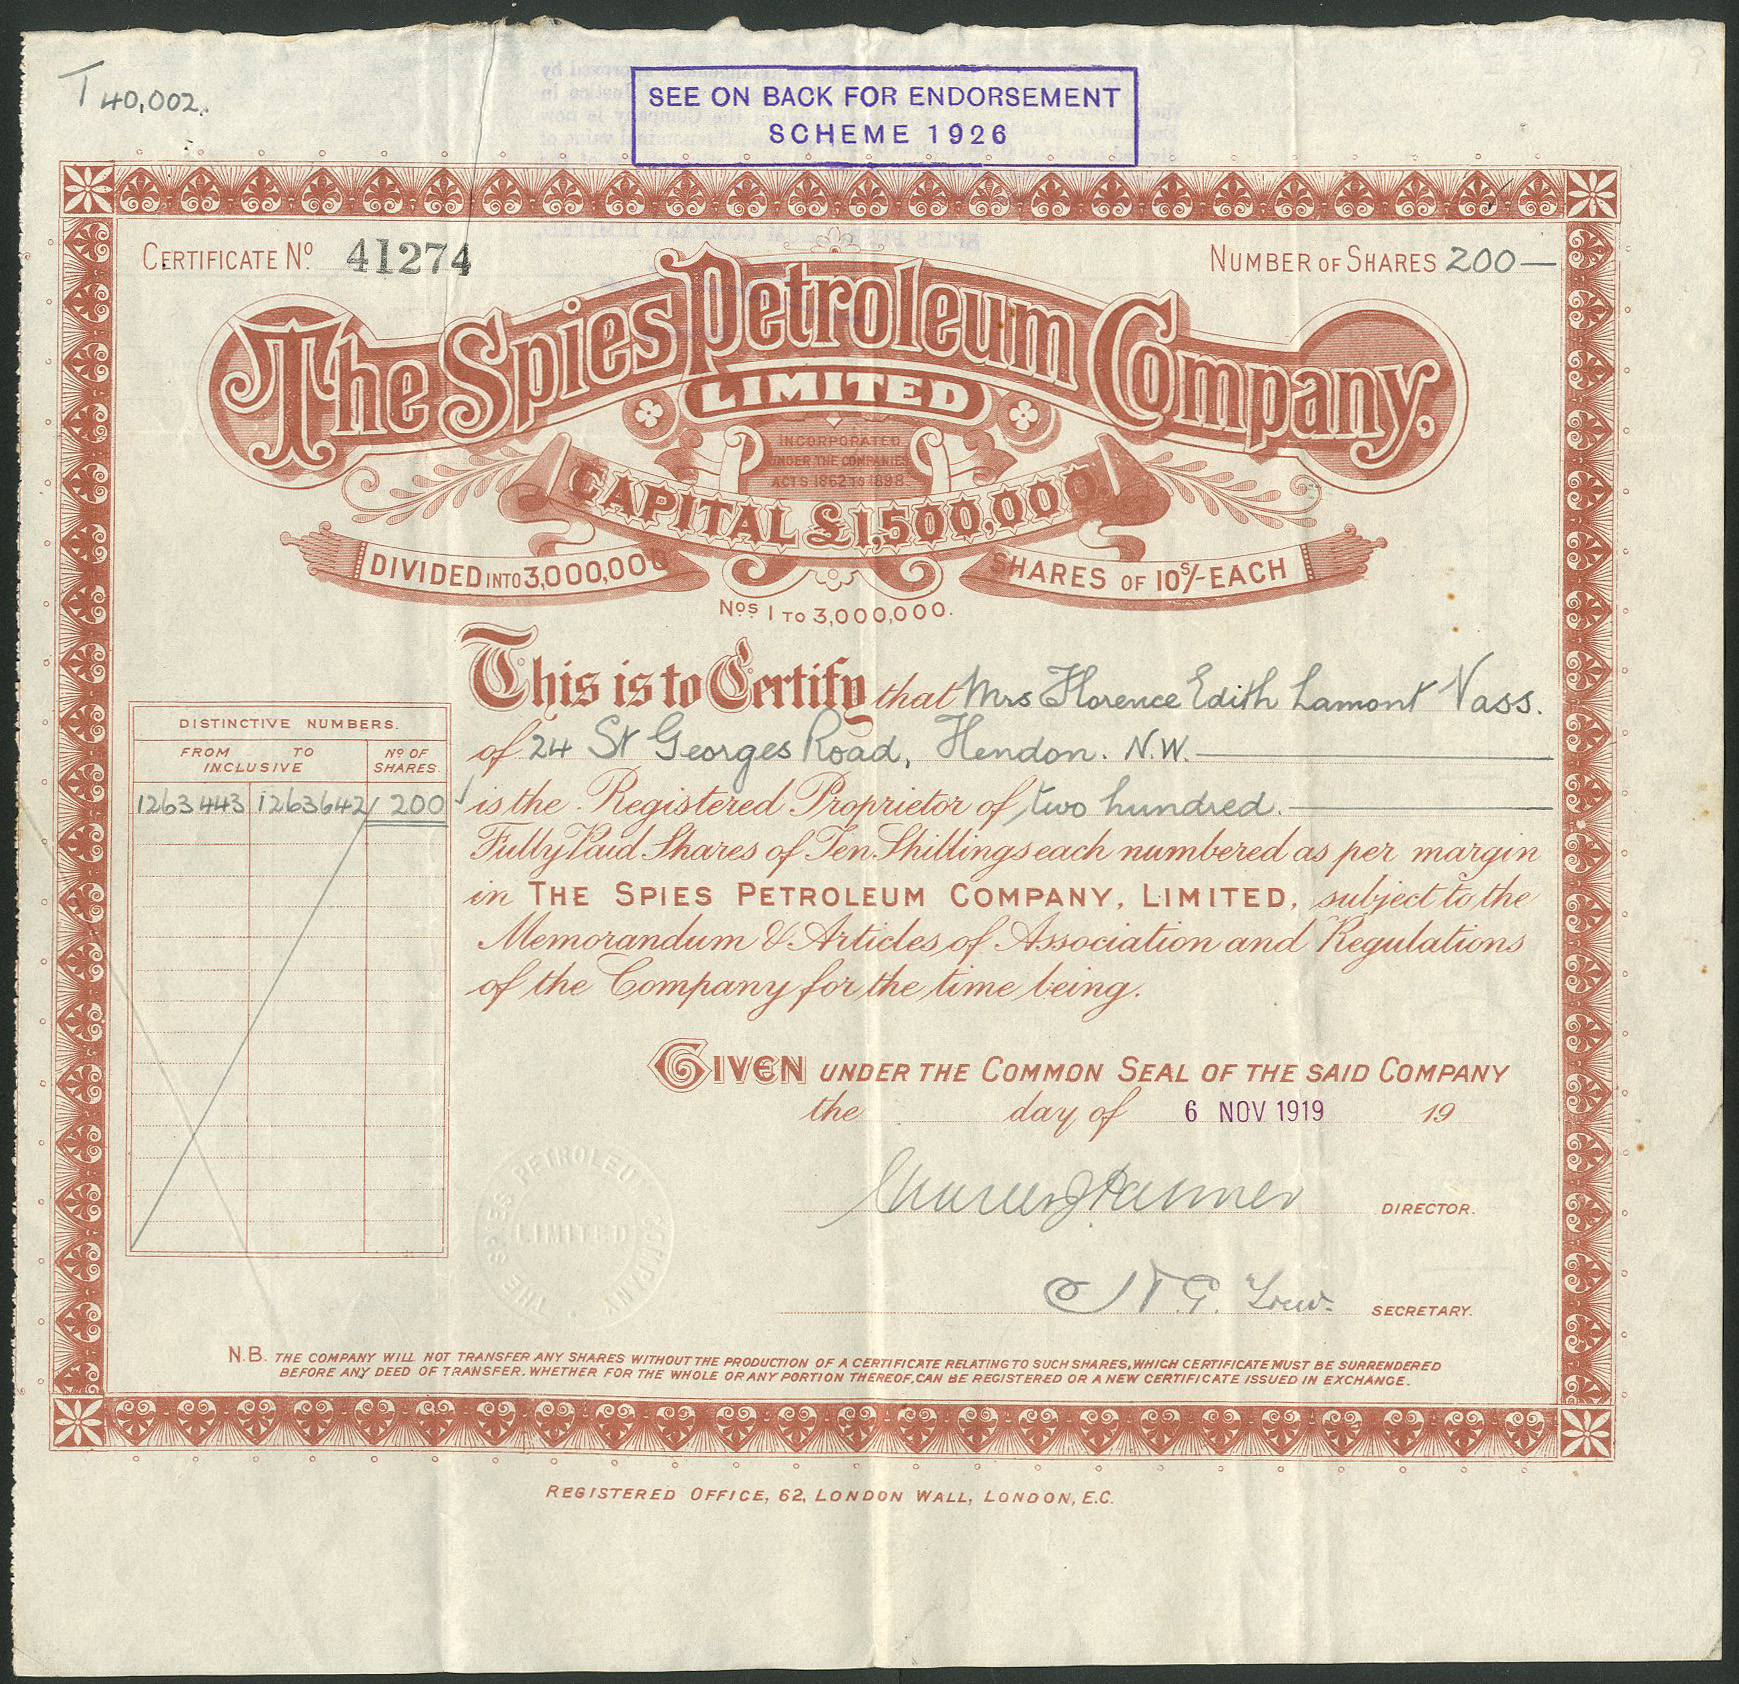 T 40,002.
SEE ON BACK FOR ENDORSEMENT
SCHEME 1926
CERTIFICATE No. 41274
NUMBER OF SHARES 200—
The Spies Petroleum Company,
LIMITED
INCORPORATED
UNDER THE COMPANIES
ACTS 1862 TO 1898
CAPITAL £1,500,000.
DIVIDED INTO 3,000,000 SHARES OF 10s/- EACH
Nos 1 TO 3,000,000.
This is to Certify that Mrs Florence Edith Lamont Vass.
of 24 St Georges Road, Hendon. N.W.
is the Registered Proprietor of two hundred.
Fully Paid Shares of Ten Shillings each numbered as per margin
in THE SPIES PETROLEUM COMPANY, LIMITED, subject to the
Memorandum & Articles of Association and Regulations
of the Company for the time being.
DISTINCTIVE NUMBERS.
FROM TO No OF
INCLUSIVE SHARES.
1263443 1263642 200
GIVEN UNDER THE COMMON SEAL OF THE SAID COMPANY
the day of 6 NOV 1919 19
DIRECTOR.
SECRETARY.
THE SPIES PETROLEUM COMPANY
LIMITED
N.B. THE COMPANY WILL NOT TRANSFER ANY SHARES WITHOUT THE PRODUCTION OF A CERTIFICATE RELATING TO SUCH SHARES, WHICH CERTIFICATE MUST BE SURRENDERED
BEFORE ANY DEED OF TRANSFER, WHETHER FOR THE WHOLE OR ANY PORTION THEREOF, CAN BE REGISTERED OR A NEW CERTIFICATE ISSUED IN EXCHANGE.
REGISTERED OFFICE, 62, LONDON WALL, LONDON, E.C.